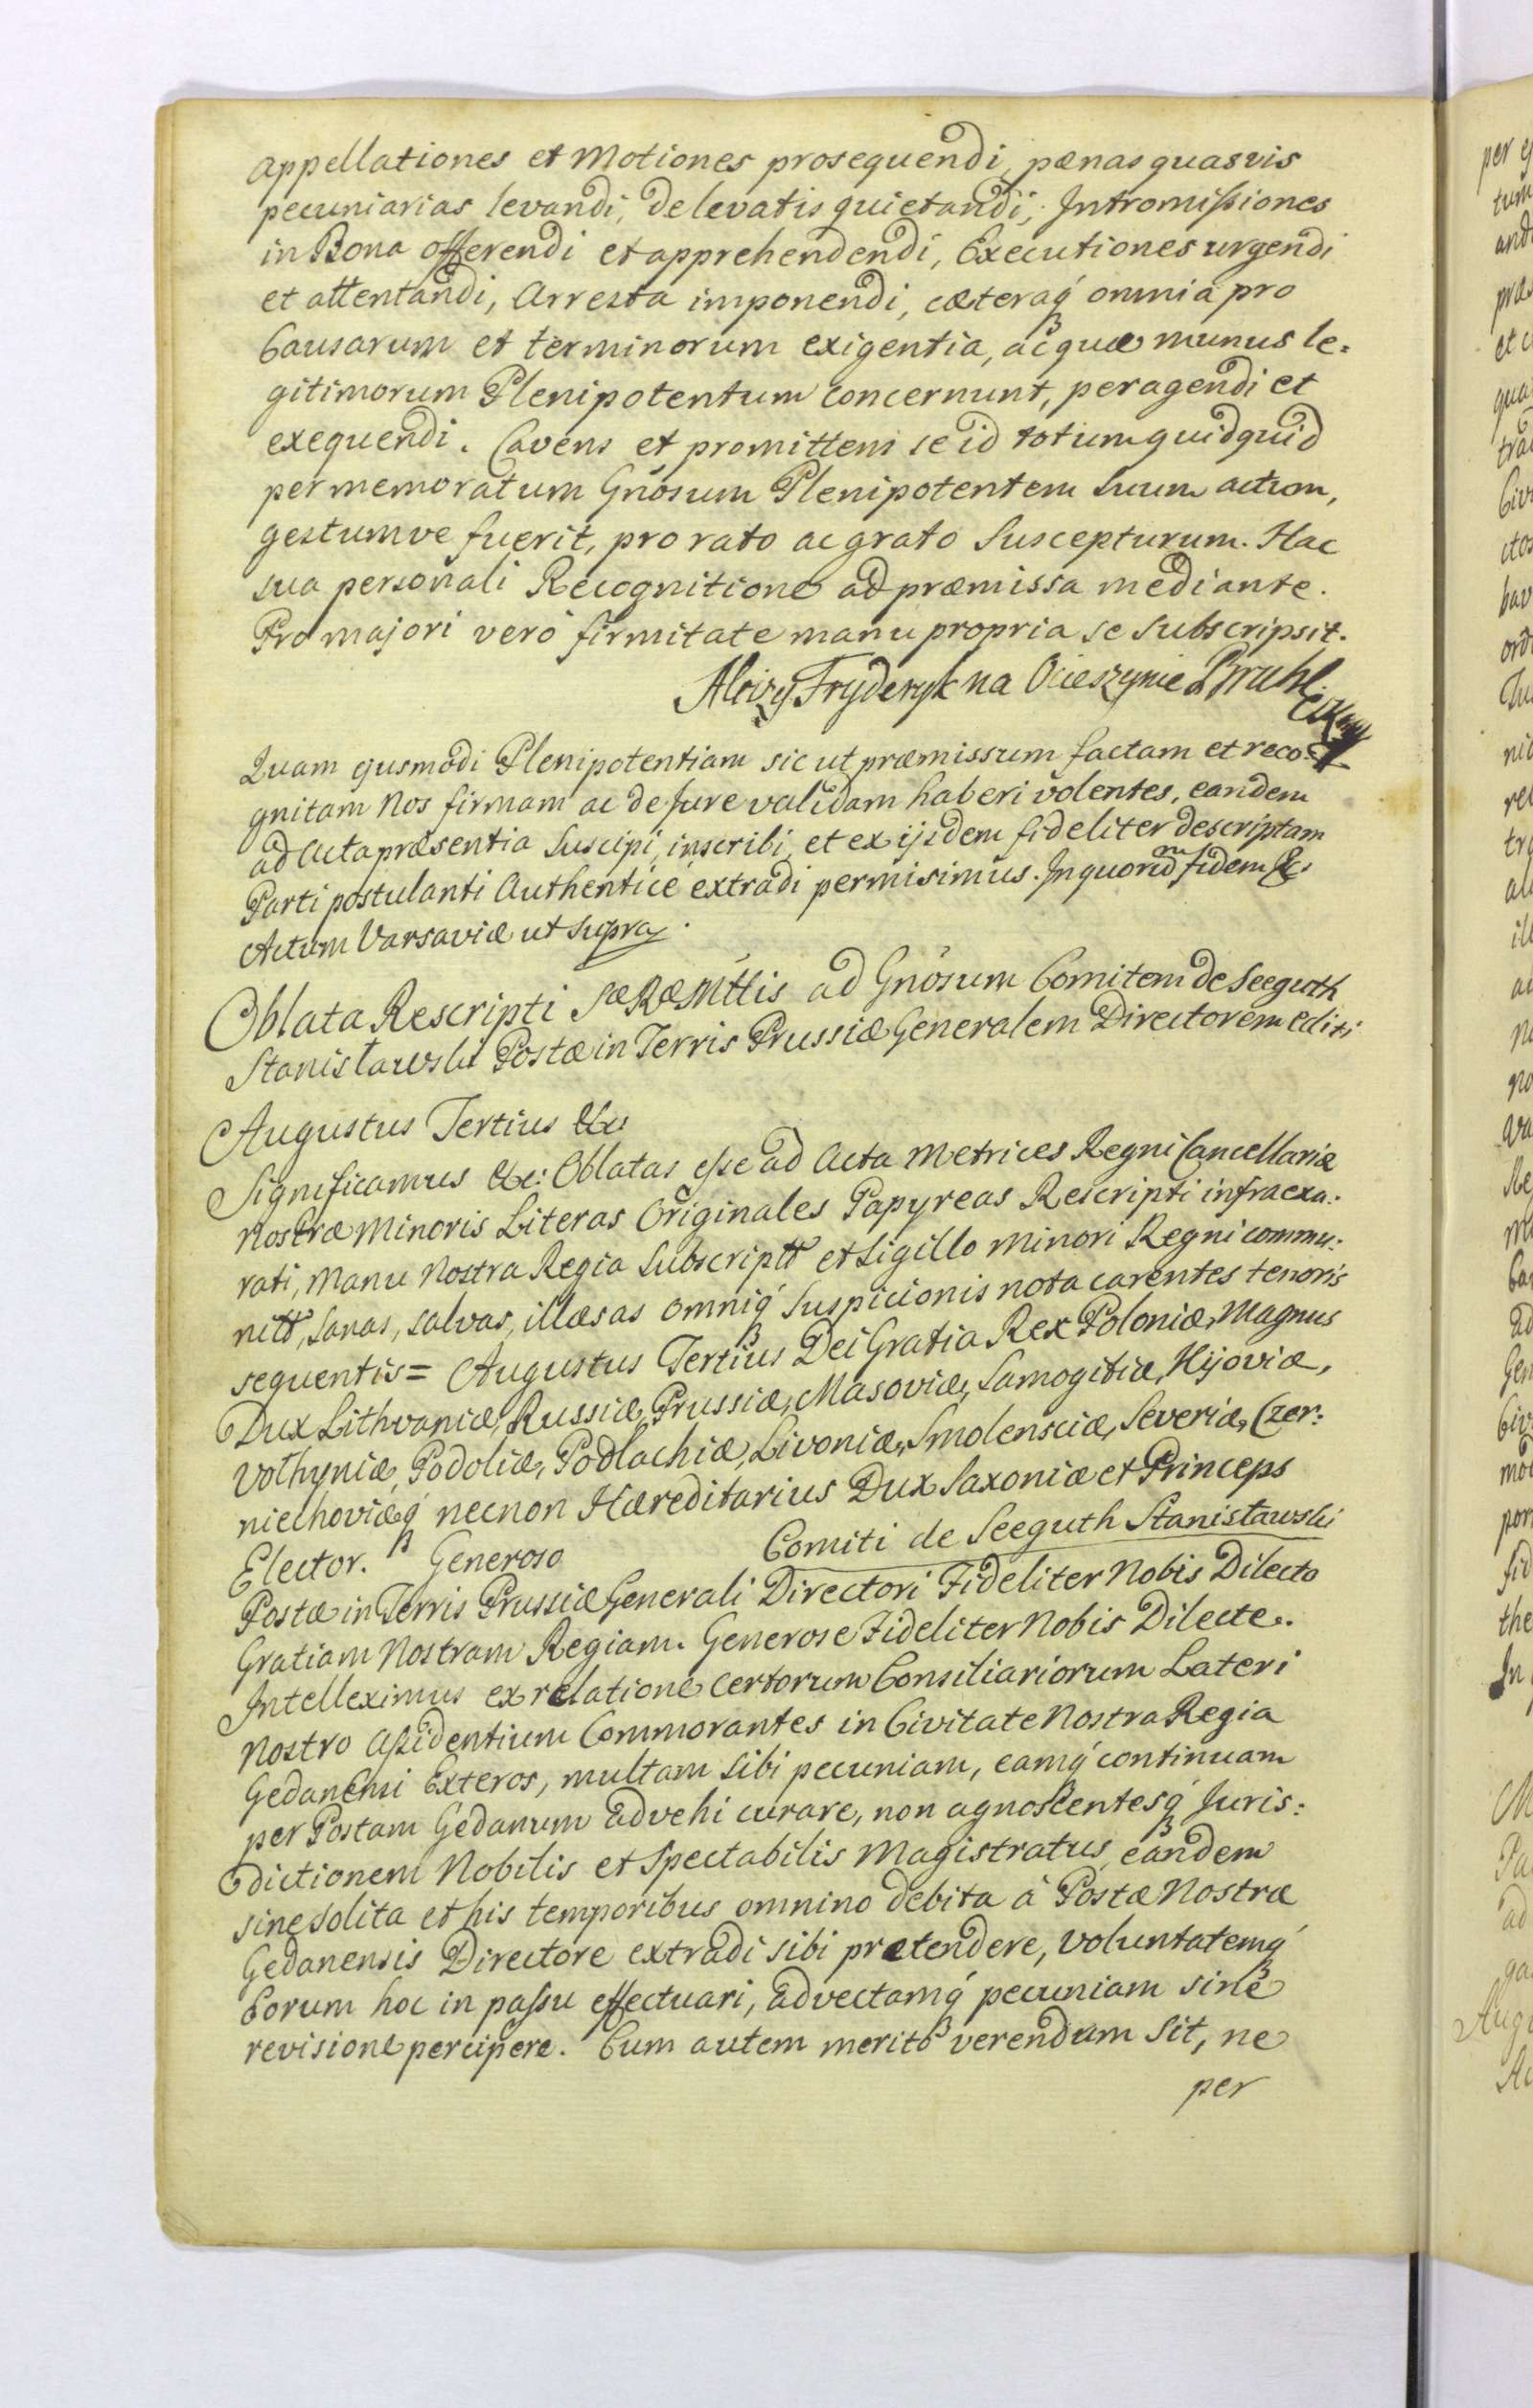 appellationes et Motiones prosequendi, pœnas quasvis
pecuniarias levandi, de levatis quietandi, Intromissiones
in Bona offerendi et apprehendendi, Executiones urgendi
et attentandi, Arresta imponendi, cæteraq́ omnia pro
Causarum et terminorum exigentia, ac quæ munus le=
gitimorum Plenipotentum concernunt, peragendi et
exequendi. Cavens et promittens se id totum quidquid
per memoratum Gnosum Plenipotentem suum actum,
gestumve fuerit, pro rato ac grato Suscepturum. Hac
sua personali Recognitione ad præmissa mediante.
Pro majori verò firmitate manu propria se subscripsit.
Aloizy Fryderyk na Ocieszynie Bruhl
Quam ejusmodi Plenipotentiam sic ut præmissum factam et reco=
gnitam Nos firmam ac de Jure validam haberi volentes, eandem
ad Acta præsentia Suscipi, inscribi, et ex ijsdem fideliter descriptam
Parti postulanti Authenticè extradi permisimus. In quorum fidem &c.
Actum Varsaviæ ut supra.
Oblata Rescripti Sæ Ræ Mttis ad Gnosum Comitem de Seeguth
Stanisławski Postæ in Terris Prussiæ Generalem Directorem editi
Augustus Tertius &c:
Significamus &c: Oblatas esse ad Acta Metrices Regni Cancellariæ
Nostræ Minoris Literas Originales Papyreas Rescripti infraexa:
rati, Manu Nostra Regia Subscriptas et Sigillo Minori Regni commu:
nitas, Sanas, salvas, illæsas omniq́ Suspicionis nota carentes tenoris
sequentis = Augustus Tertius Dei Gratia Rex Poloniæ, Magnus
Dux Lithvaniæ, Russiæ, Prussiæ, Masoviæ, Samogitiæ, Kijoviæ,
Volhyniæ, Podoliæ, Podlachiæ, Livoniæ, Smolensciæ, Severiæ, Czer:
niechoviæq́ necnon Hæreditarius Dux Saxoniæ et Princeps
Elector. Generoso Comiti de Seeguth Stanisławski
Postæ in Terris Prussiæ Generali Directori Fideliter Nobis Dilecto
Gratiam Nostram Regiam. Generose Fideliter Nobis Dilecte.
Intelleximus ex relatione certorum Consiliariorum Lateri
Nostro assidentium Commorantes in Civitate Nostra Regia
Gedanensi Exteros, multam sibi pecuniam, eamq́ continuam
per Postam Gedanum advehi curare, non agnoscentesq́ Juris:
dictionem Nobilis et Spectabilis Magistratus, eandem
sine solita et his temporibus omnino debita à Postæ Nostræ
Gedanensis Directore extradi sibi prætendere, voluntatemq́
Eorum hoc in passu effectuari, advectamq́ pecuniam sine
revisione percipere. Cum autem meritò verendum Sit, ne
per